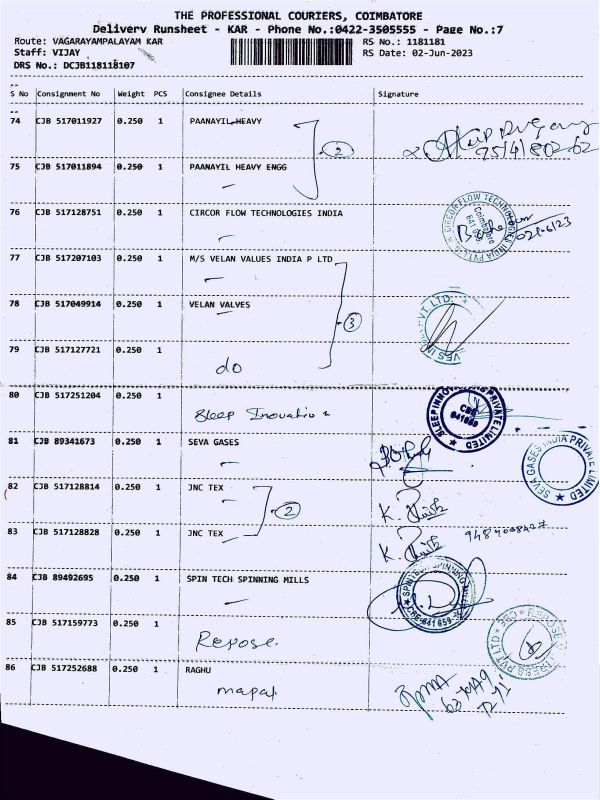 THE PROFESSIONAL COURIERS, COIMBATORE
Delivery Runsheet - KAR - Phone No.:0422-3505555 - Page No.:7
Route: VAGARAYAMPALAYAM KAR RS No.: 1181181
Staff: VIJAY RS Date: 02-Jun-2023
DRS No.: DCJB118118107
S No Consignment No Weight PCS Consignee Details Signature
74 CJB 517011927 0.250 1 PAANAYIL HEAVY
2
75 CJB 517011894 0.250 1 PAANAYIL HEAVY ENGG
76 CJB 517128751 0.250 1 CIRCOR FLOW TECHNOLOGIES INDIA
CIRCOR FLOW TECHNOLOGIES INDIA PVT LTD
Coimbatore
77 CJB 517207103 0.250 1 M/S VELAN VALUES INDIA P LTD
78 CJB 517049914 0.250 1 VELAN VALVES
3
79 CJB 517127721 0.250 1
do
80 CJB 517251204 0.250 1
Sleep Inovation
CBE
641659
PRIVATE LIMITED
81 CJB 89341673 0.250 1 SEVA GASES
SEVA GASES INDIA PRIVATE LIMITED
82 CJB 517128814 0.250 1 JNC TEX
2
83 CJB 517128828 0.250 1 JNC TEX
84 CJB 89492695 0.250 1 SPIN TECH SPINNING MILLS
85 CJB 517159773 0.250 1
Repose.
86 CJB 517252688 0.250 1 RAGHU